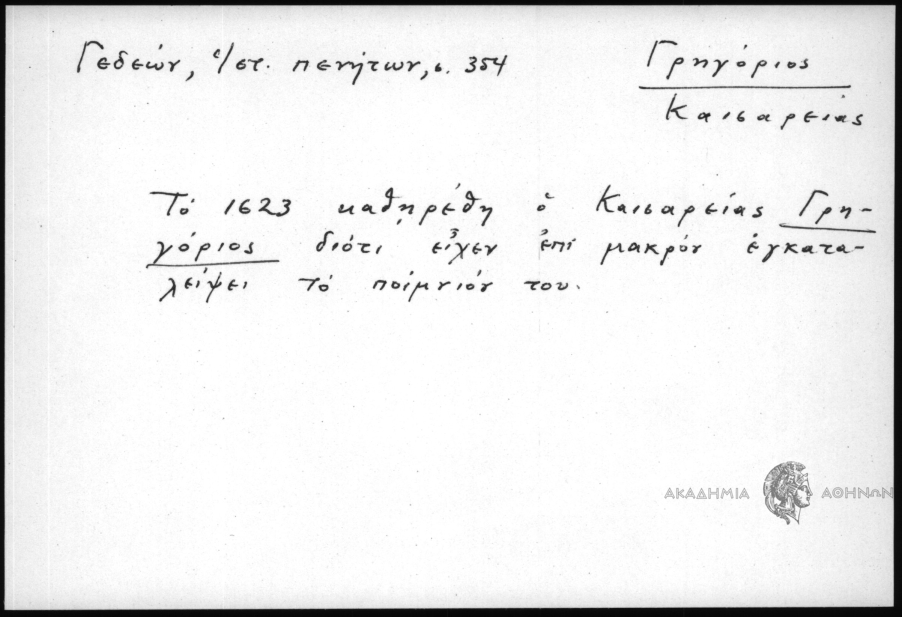 Γεδεών, Ἱστ. πενήτων, σ. 354
Γρηγόριος
Καισαρείας
Τό 1623 καθηρέθη ὁ Καισαρείας Γρη-
γόριος διότι εἶχεν ἐπί μακρόν ἐγκατα-
λείψει τό ποίμνιόν του.
ΑΚΑΔΗΜΙΑ ΑΘΗΝΩΝ